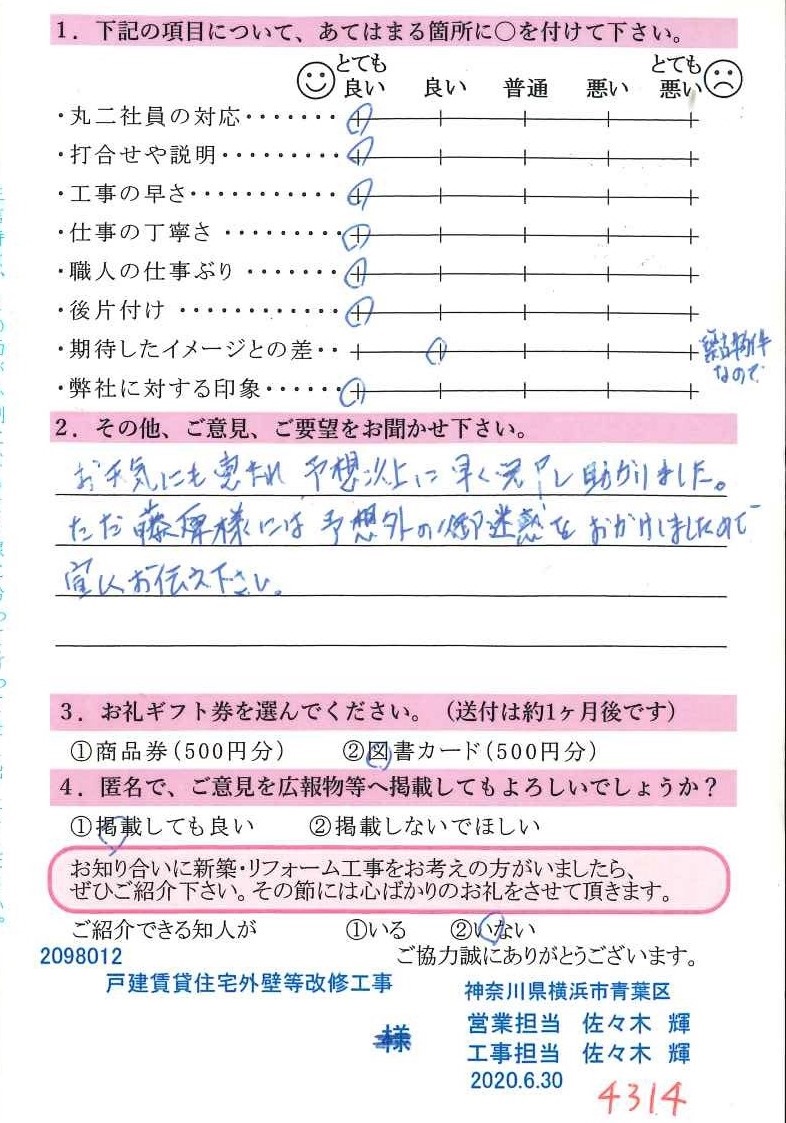 1. 下記の項目について、あてはまる箇所に○を付けて下さい。
とても良い 良い 普通 悪い とても悪い
・丸二社員の対応・・・・・・・
・打合せや説明・・・・・・・・・
・工事の早さ・・・・・・・・・・・
・仕事の丁寧さ ・・・・・・・・・
・職人の仕事ぶり ・・・・・・・
・後片付け ・・・・・・・・・・・・
・期待したイメージとの差・・
築古物件
なので
・弊社に対する印象・・・・・
2. その他、ご意見、ご要望をお聞かせ下さい。
お天気にも恵まれ 予想以上に早く完了し助かりました。
ただ藤原様には予想外の御迷惑をおかけしましたので
宜しくお伝え下さい。
3. お礼ギフト券を選んでください。(送付は約1ヶ月後です)
①商品券(500円分) ②図書カード(500円分)
4. 匿名で、ご意見を広報物等へ掲載してもよろしいでしょうか?
①掲載しても良い ②掲載しないでほしい
お知り合いに新築・リフォーム工事をお考えの方がいましたら、
ぜひご紹介下さい。その節には心ばかりのお礼をさせて頂きます。
ご紹介できる知人が ①いる ②いない
2098012 ご協力誠にありがとうございます。
戸建賃貸住宅外壁等改修工事
神奈川県横浜市青葉区
様
営業担当 佐々木 輝
工事担当 佐々木 輝
2020.6.30
4314